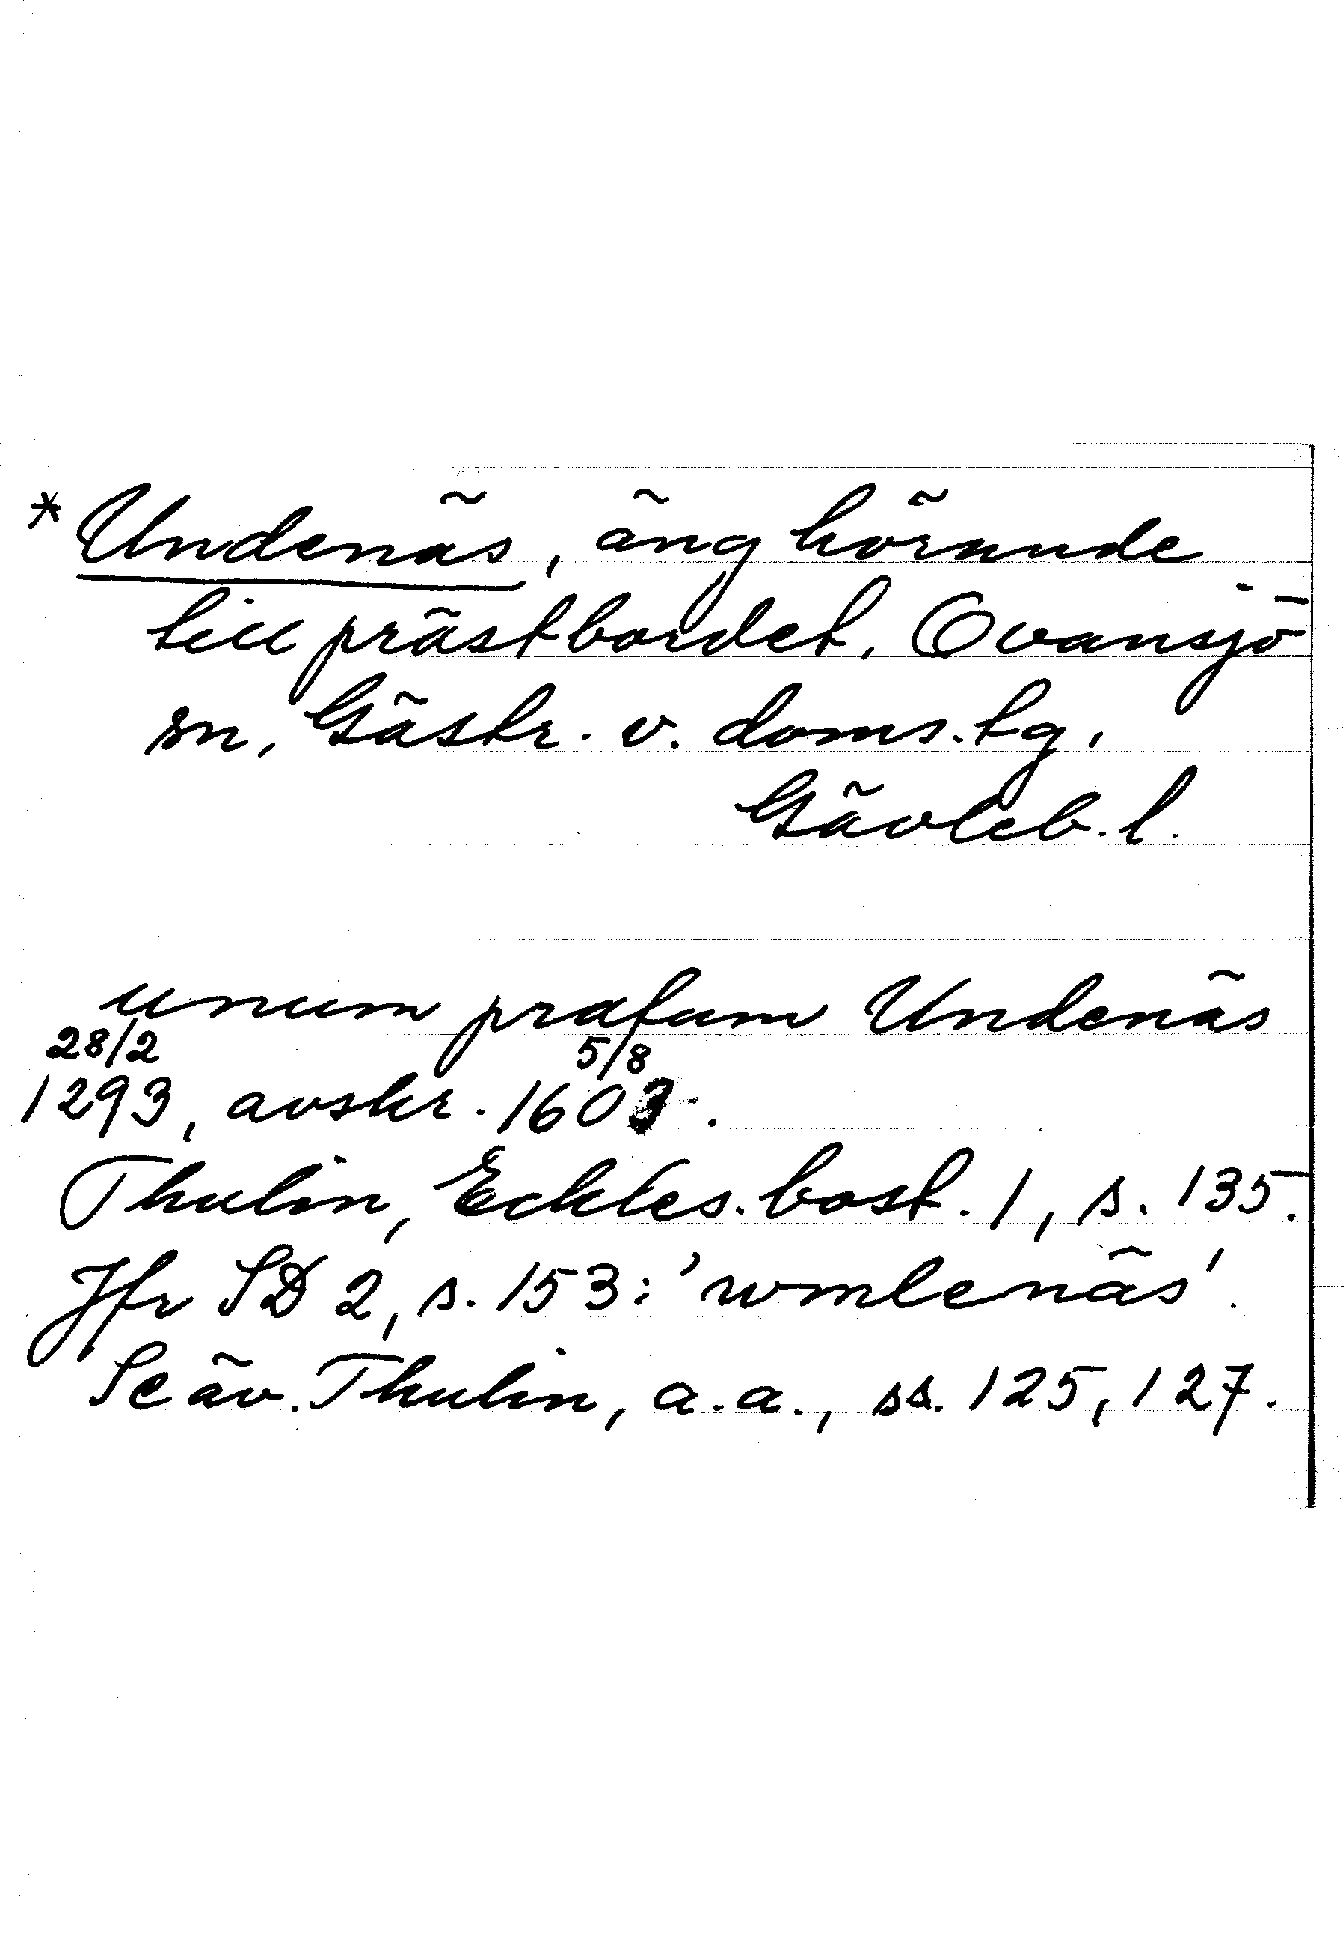 * Undenäs, äng hörande
till prästbordet, Ovansjö
sn, Gästr. v. doms. tg,
Gävleb. l.
unum pratum Undenäs
28/2 5/8
1293, avskr. 1603.
Thulin, Eckles. bost. 1, s. 135.
Jfr SD 2, s. 153: 'wmlenäs'.
Se äv. Thulin, a.a., ss. 125, 127.